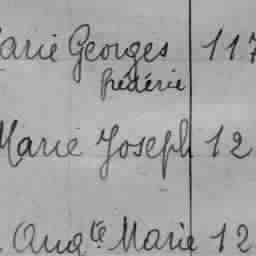 Marie Georges 117
frédéric
Marie Joseph 12
Aug^te Marie 12